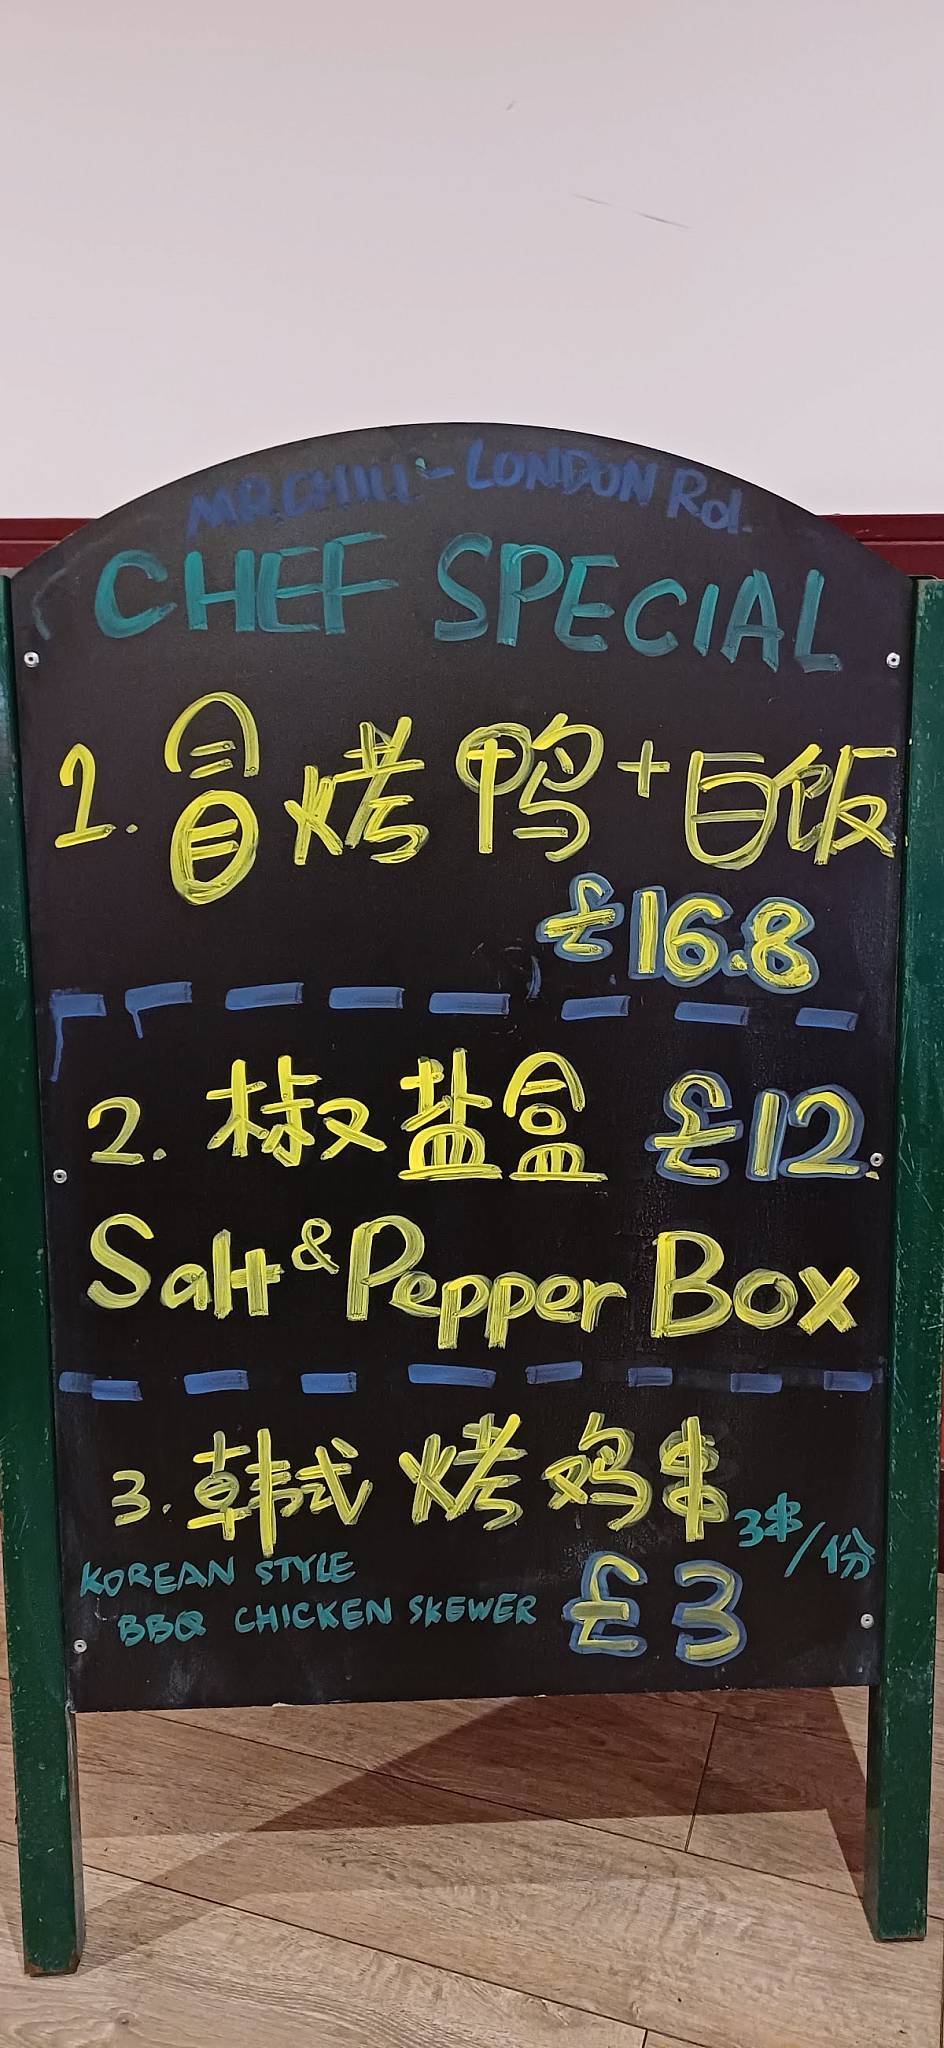 MR.CHILLI - LONDON Rd.
CHEF SPECIAL
1. 冒烤鸭+白饭
£16.8
2. 椒盐盒 £12.
Salt & Pepper Box
3. 韩式烤鸡串 3串/份
KOREAN STYLE
BBQ CHICKEN SKEWER £3